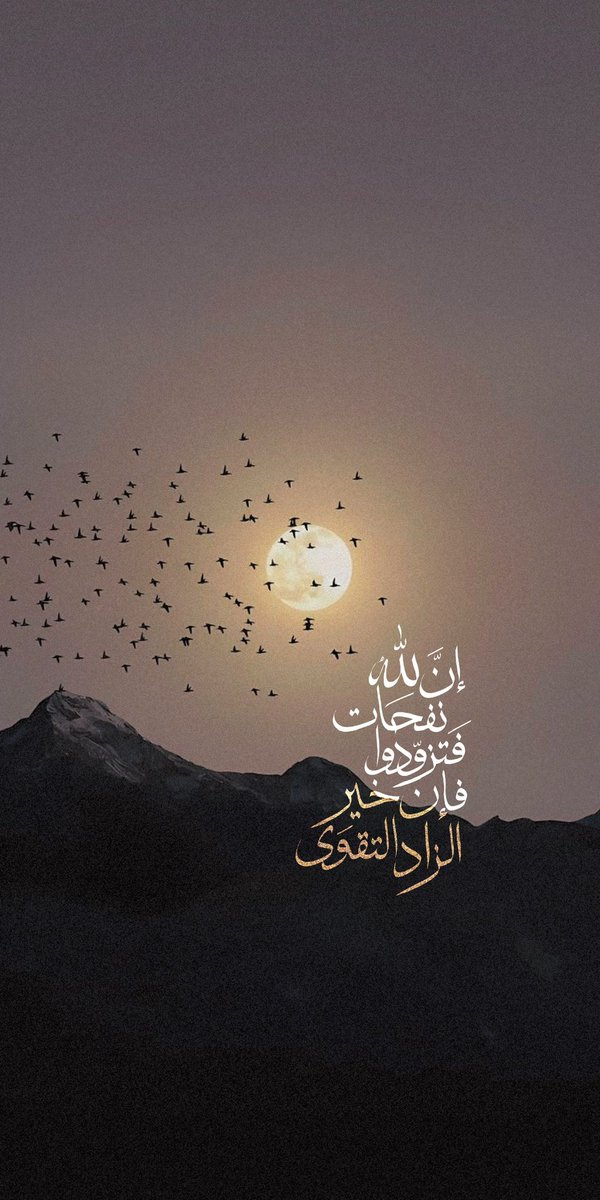 إنَّ لله
نفحَات
فَتزوّدوا
فإن خير
الزاد التقوَى